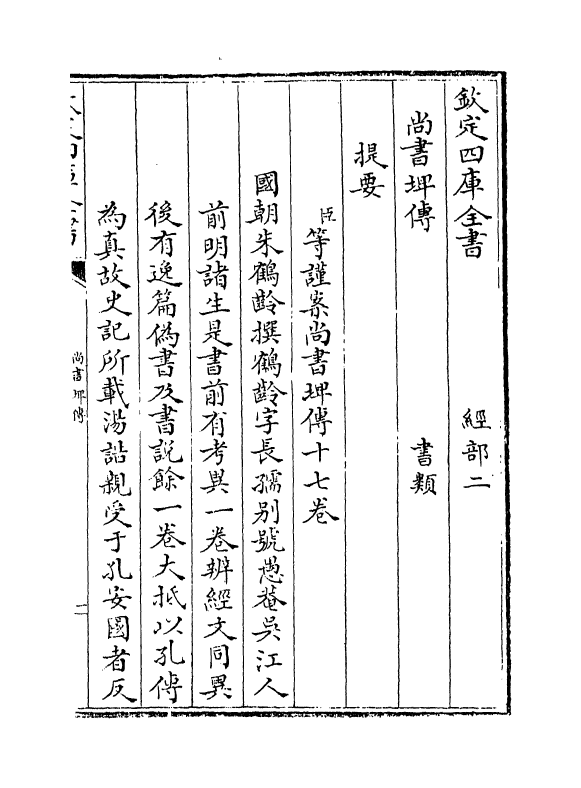 欽定四庫全書　經部二
尚書埤傳　書類
提要
臣等謹案尚書埤傳十七卷
國朝朱鶴齡撰鶴齡字長孺别號愚菴吳江人
前明諸生是書前有考異一卷辨經文同異
後有逸篇偽書及書説餘一卷大抵以孔傳
為真故史記所載湯誥親受于孔安國者反
尚書埤傳
一